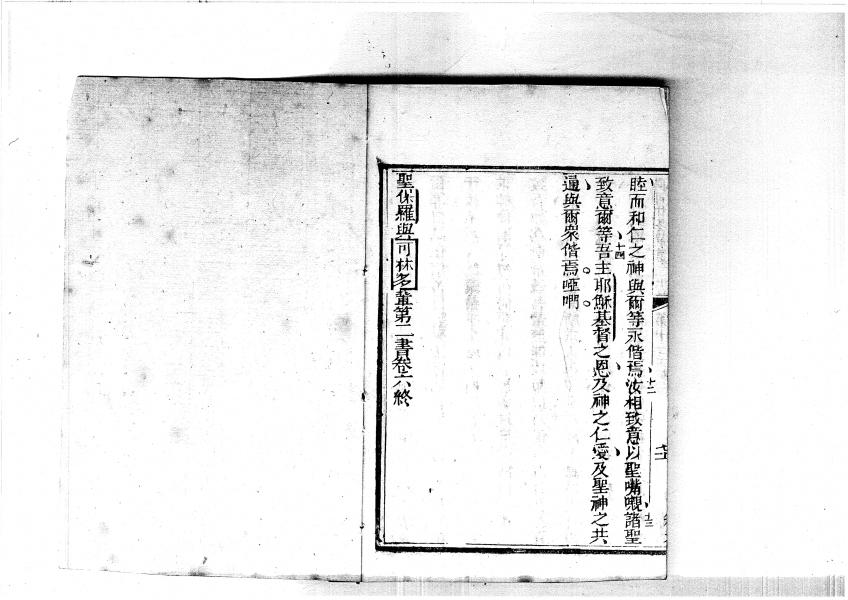 睦而和仁之神與爾等永偕焉汝相致意以聖嘴嚫諸聖
十二
十三
致意爾等吾主耶穌基督之恩及神之仁愛及聖神之共
十四
通與爾眾偕焉啞們
聖保羅與可林多輩第二書卷六終